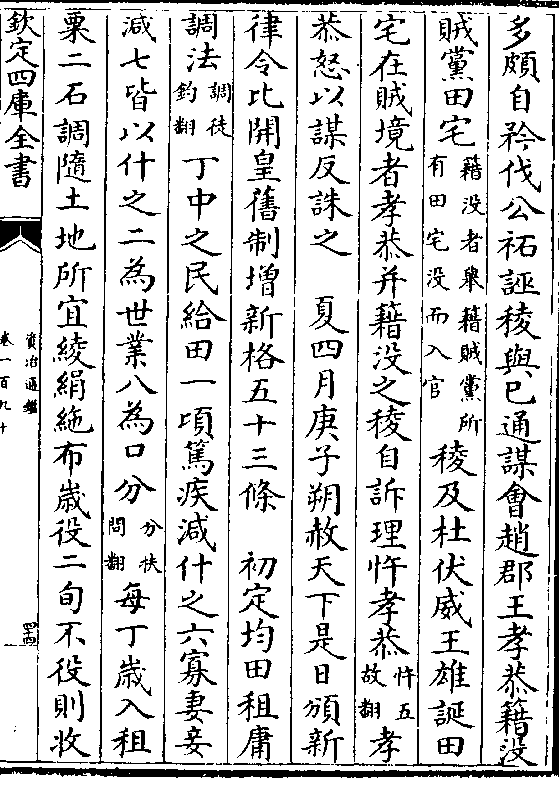 多頗自矜伐公祏誣稜與已通謀會趙郡王孝恭籍没
賊黨田宅籍没者舉籍賊黨所有田宅没而入官稜及杜伏威王雄誕田
宅在賊境者孝恭并籍没之稜自訴理忤孝恭忤五故翻孝
恭怒以謀反誅之　夏四月庚子朔赦天下是日頒新
律令比開皇舊制增新格五十三條　初定均田租庸
調法調徒釣翻丁中之民給田一頃篤疾減什之六寡妻妾
減七皆以什之二為世業八為口分分扶問翻每丁歲入租
粟二石調隨土地所宜綾絹絁布歲役二旬不役則收
欽定四庫全書
資治通鑑
卷一百九十
四